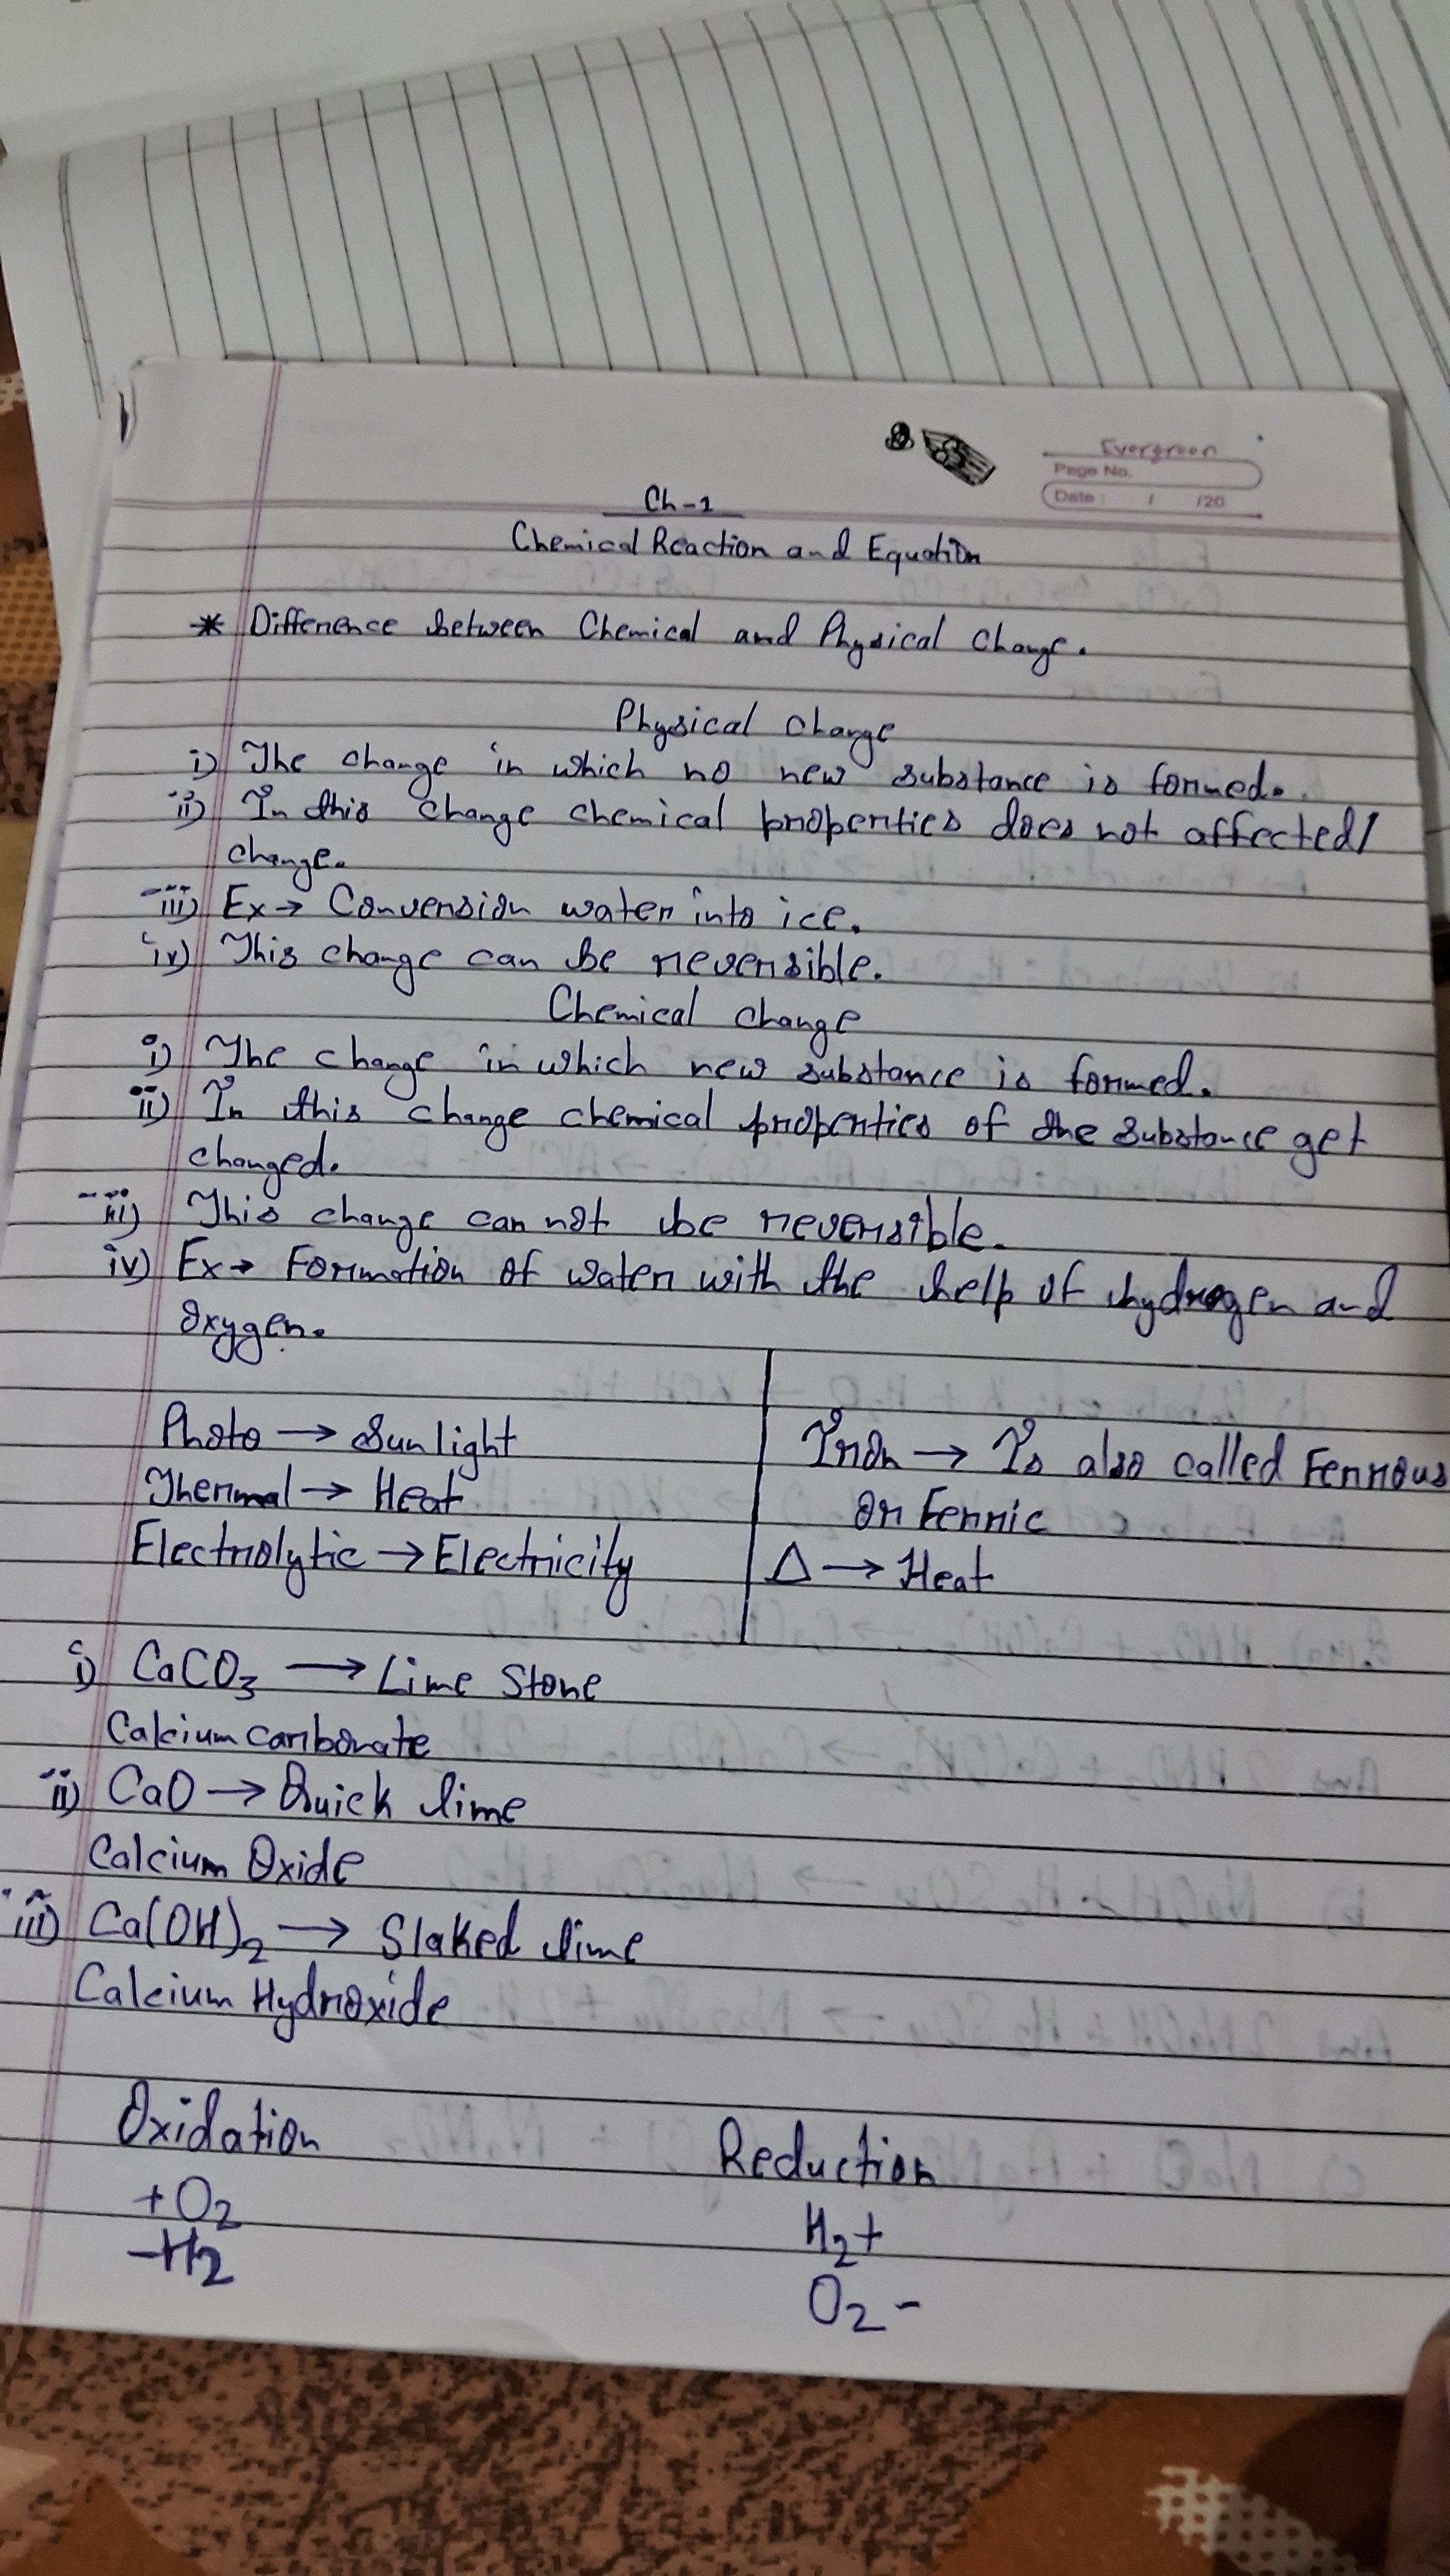 Evergreen
Page No.
Date : / /20
Ch-1
Chemical Reaction and Equation
* Difference between Chemical and Physical Change.
Physical Change
i) The change in which no new substance is formed.
ii) In this change chemical properties does not affected/
change.
iii) Ex→ Conversion water into ice.
iv) This change can be reversible.
Chemical change
i) The change in which new substance is formed.
ii) In this change chemical properties of the substance get
changed.
iii) This change can not be reversible.
iv) Ex→ Formation of water with the help of hydrogen and
oxygen.
Photo → Sunlight
Thermal → Heat
Electrolytic → Electricity
Iron → Is also called Ferrous
or Ferric
Δ → Heat
i) CaCO₃ → Lime Stone
Calcium carbonate
ii) CaO → Quick lime
Calcium Oxide
iii) Ca(OH)₂ → Slaked lime
Calcium Hydroxide
Oxidation
+O₂
-H₂
Reduction
H₂+
O₂-